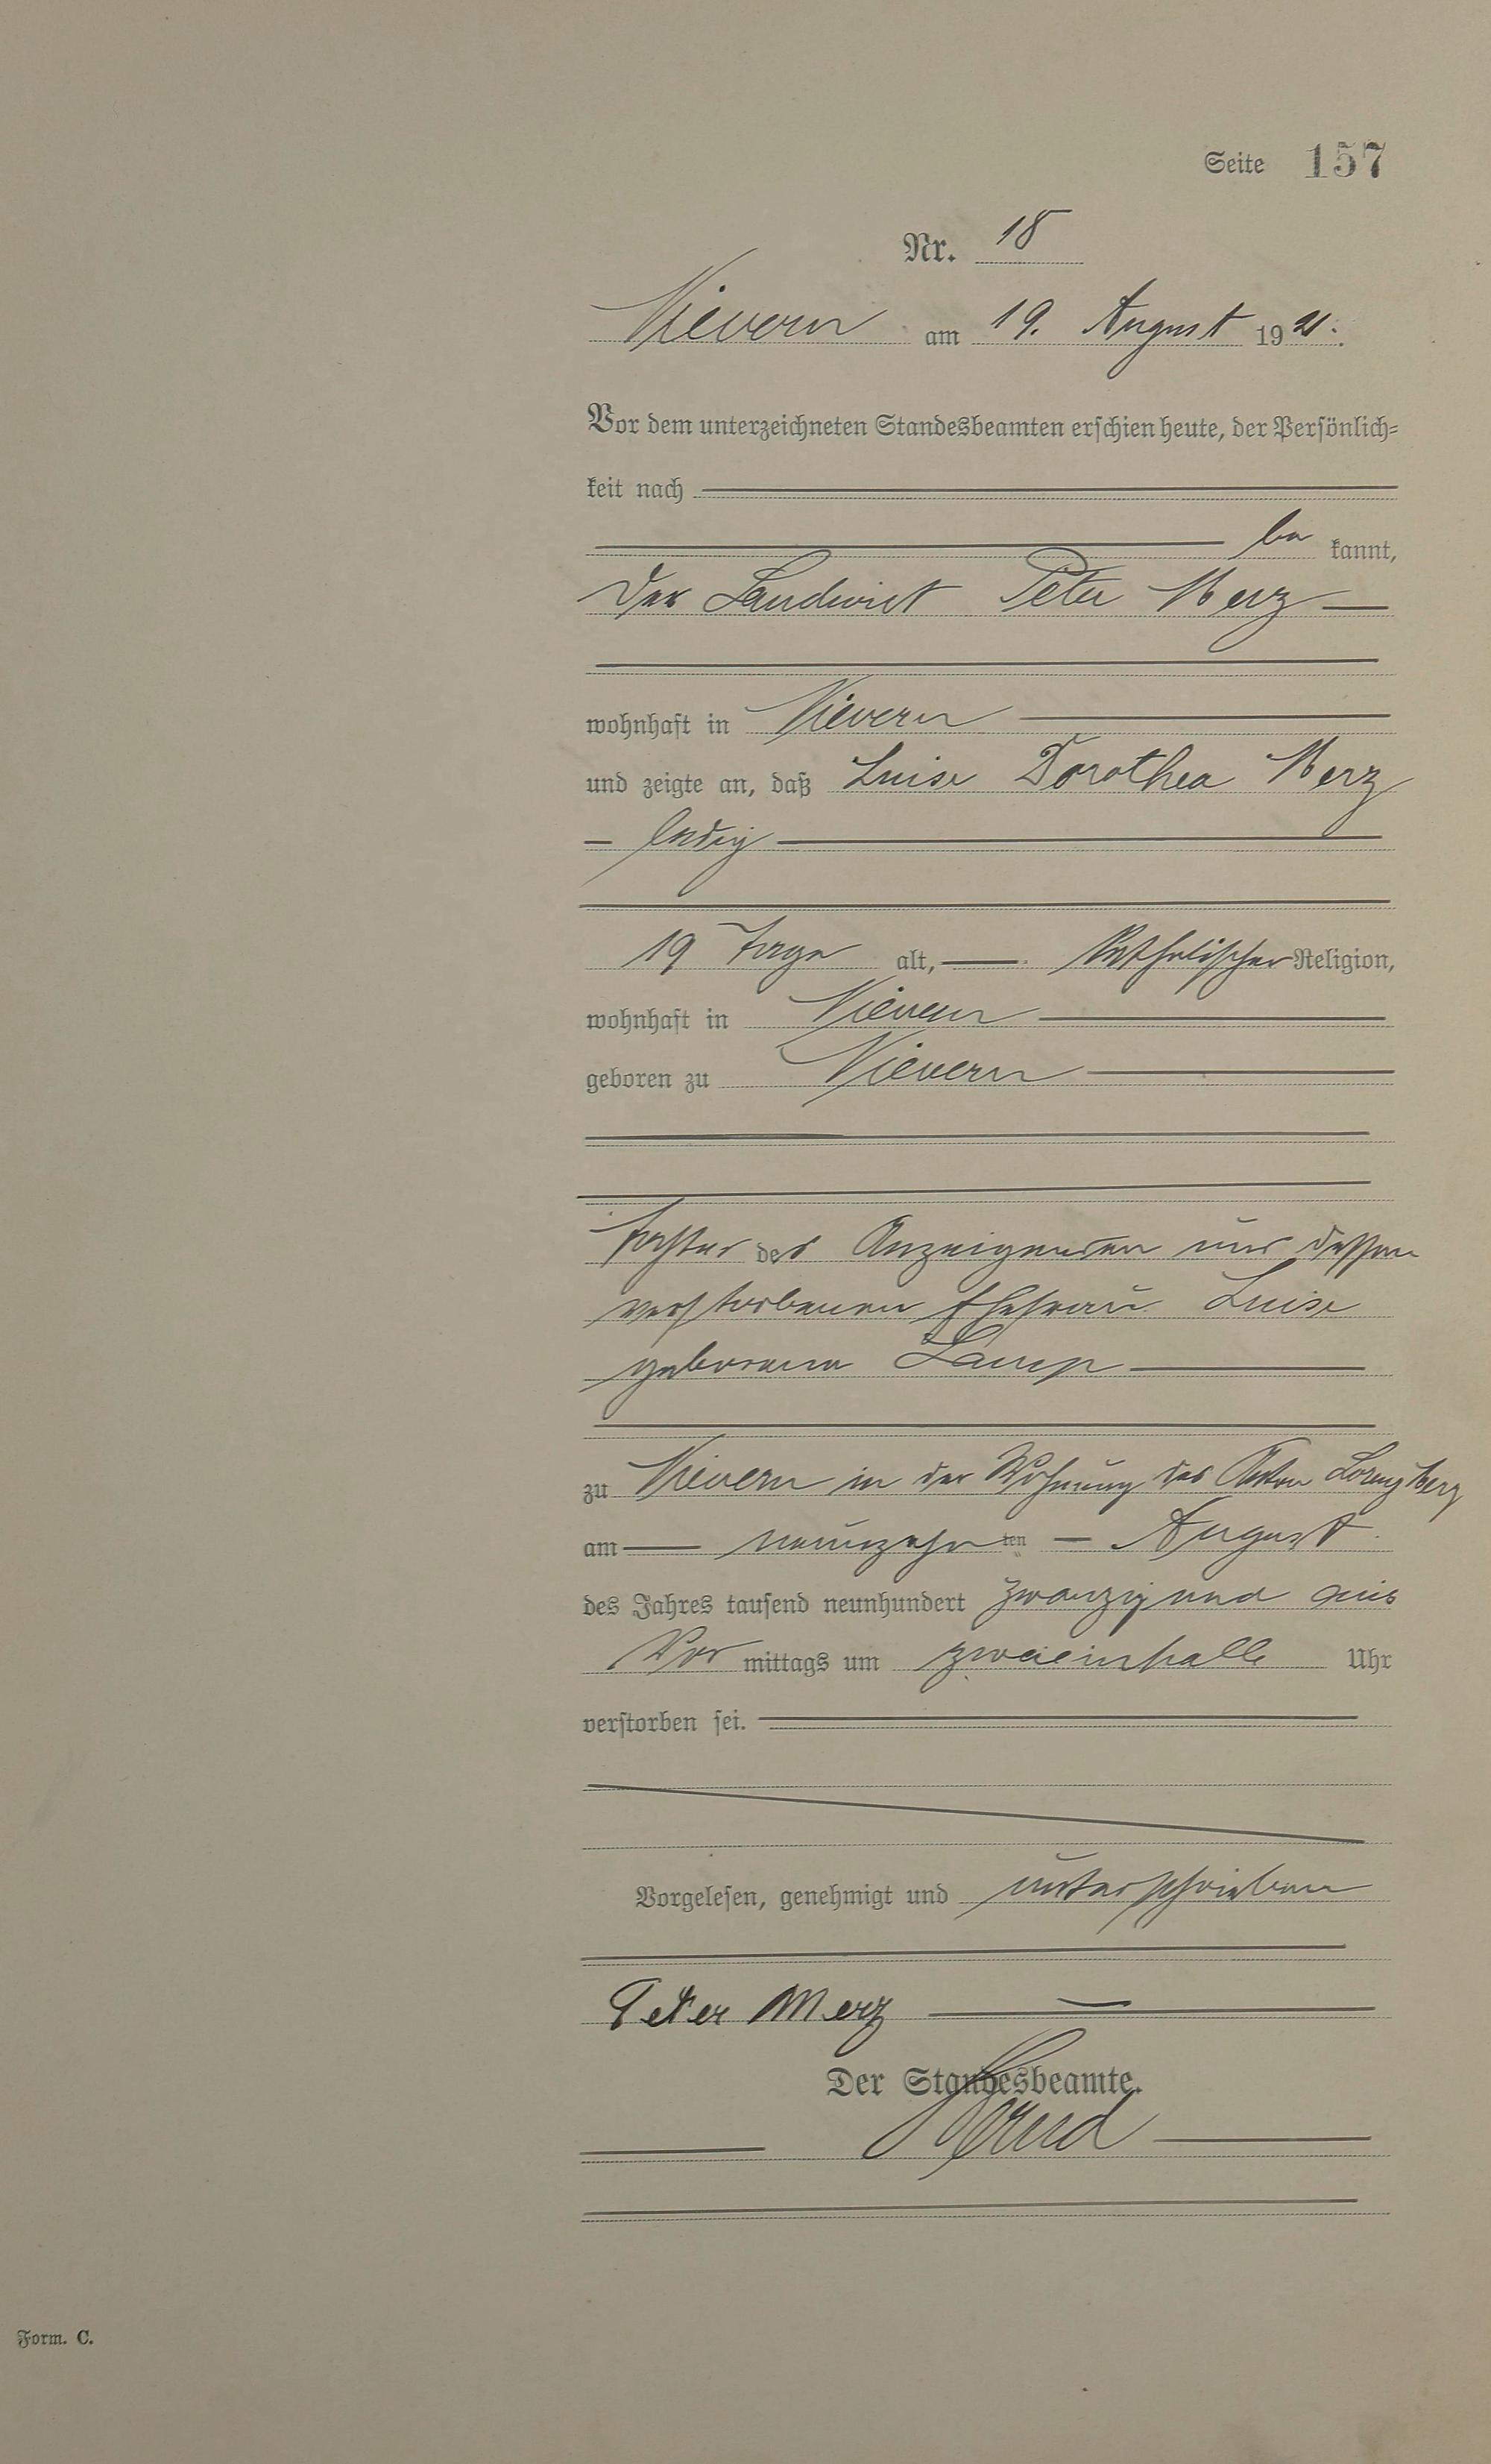 Seite 157
Nr. 18
Nievern am 19. August 1921.
Vor dem unterzeichneten Standesbeamten erschien heute, der Persönlich-
keit nach
be kannt,
Der Landwirt Peter Merz
wohnhaft in Nievern
und zeigte an, daß Luise Dorothea Merz
ledig
19 Tage alt, Katholischer Religion,
wohnhaft in Nievern
geboren zu Nievern
Tochter des Anzeigenden und dessen
verstorbenen Ehefrau Luise
geborene
zu Nievern in der Wohnung des Anton Lorenz Merz
am neunzehn ten August
des Jahres tausend neunhundert zwanzig und eins
Vor mittags um zweieinhalb Uhr
verstorben sei.
Vorgelesen, genehmigt und unterschrieben
Peter Merz
Der Standesbeamte.
Form. C.